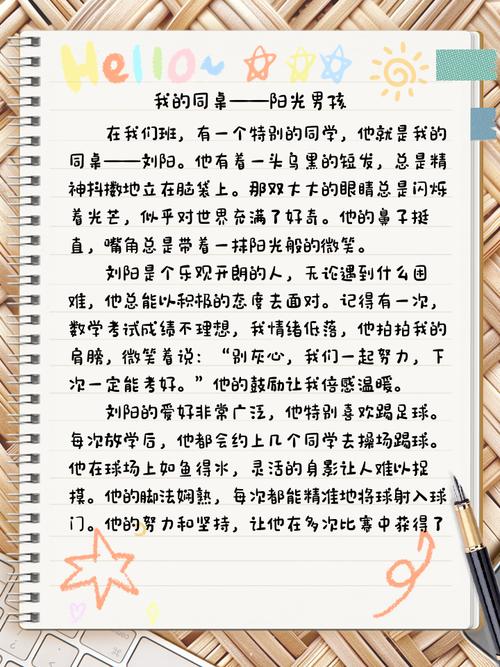 Hello~
我的同桌——阳光男孩
在我们班，有一个特别的同学，他就是我的
同桌——刘阳。他有着一头乌黑的短发，总是精
神抖擞地立在脑袋上。那双大大的眼睛总是闪烁
着光芒，似乎对世界充满了好奇。他的鼻子挺
直，嘴角总是带着一抹阳光般的微笑。
刘阳是个乐观开朗的人，无论遇到什么困
难，他总能以积极的态度去面对。记得有一次，
数学考试成绩不理想，我情绪低落，他拍拍我的
肩膀，微笑着说：“别灰心，我们一起努力，下
次一定能考好。”他的鼓励让我倍感温暖。
刘阳的爱好非常广泛，他特别喜欢踢足球。
每次放学后，他都会约上几个同学去操场踢球。
他在球场上如鱼得水，灵活的身影让人难以捉
摸。他的脚法娴熟，每次都能精准地将球射入球
门。他的努力和坚持，让他在多次比赛中获得了